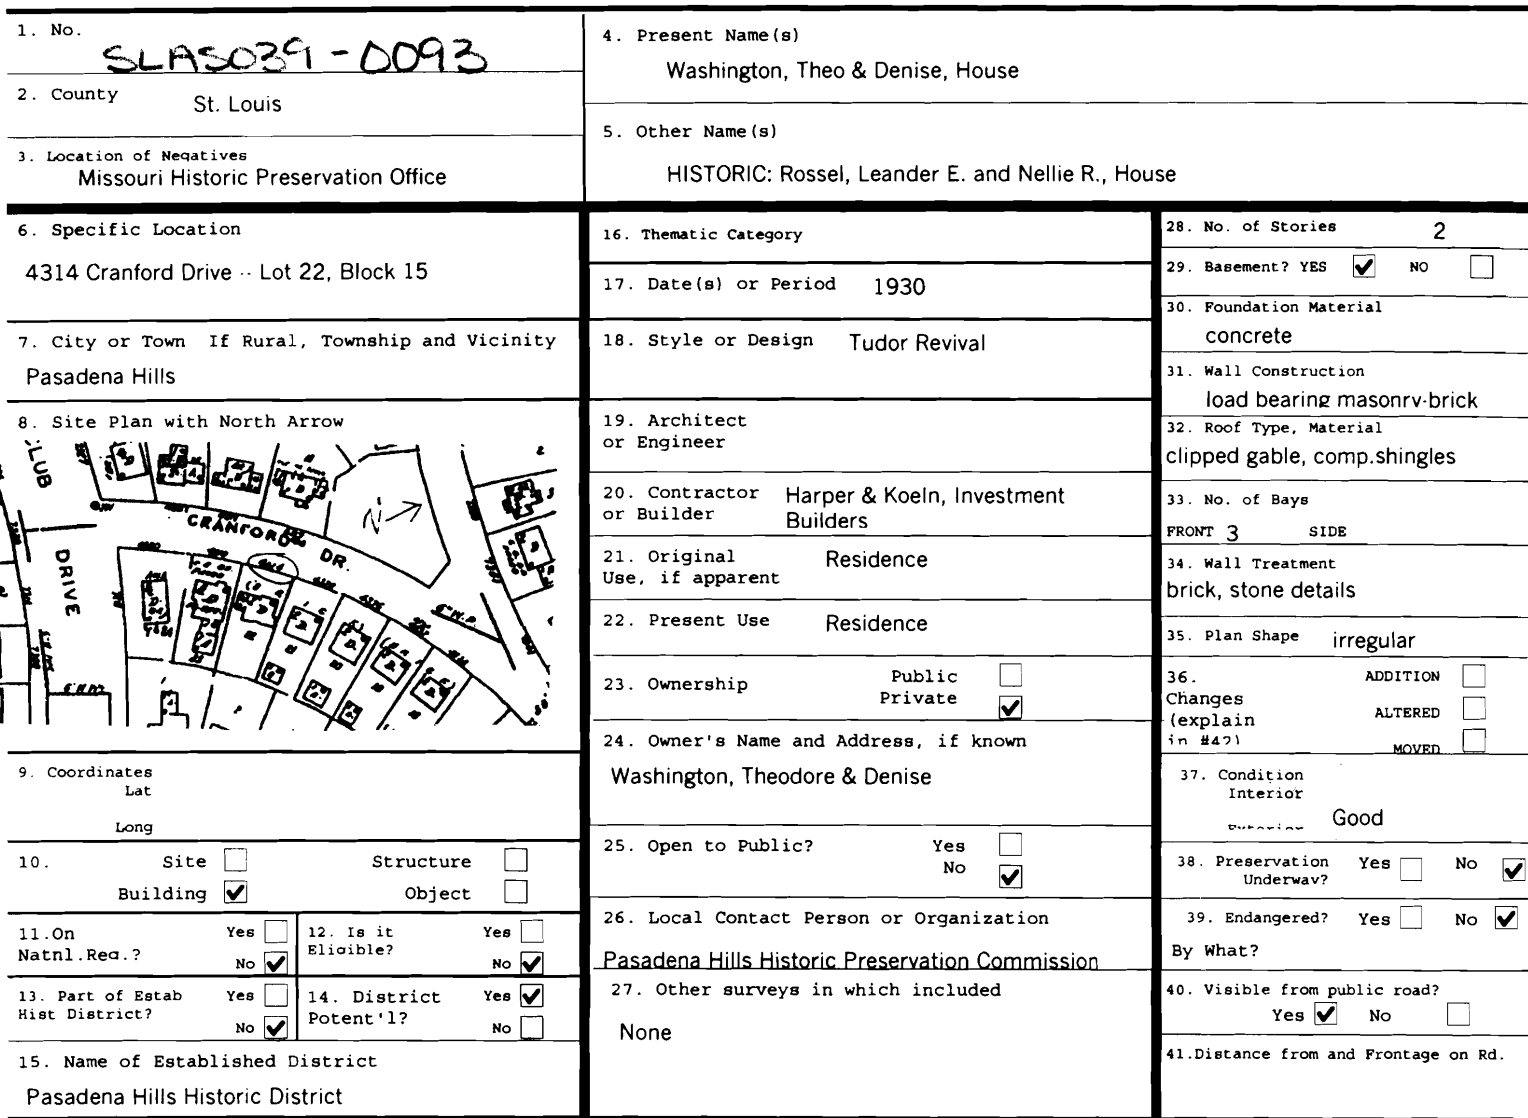 1. No.
SLAS039-0093
2. County
St. Louis
3. Location of Negatives
Missouri Historic Preservation Office
4. Present Name(s)
Washington, Theo & Denise, House
5. Other Name(s)
HISTORIC: Rossel, Leander E. and Nellie R., House
6. Specific Location
4314 Cranford Drive -- Lot 22, Block 15
7. City or Town If Rural, Township and Vicinity
Pasadena Hills
8. Site Plan with North Arrow
CLUB
DRIVE
CRANFORD DR.
N
9. Coordinates
Lat
Long
10. Site Structure
Building Object
11.On Yes
Natnl.Reg.? No
12. Is it Yes
Eligible? No
13. Part of Estab Yes
Hist District? No
14. District Yes
Potent'l? No
15. Name of Established District
Pasadena Hills Historic District
16. Thematic Category
17. Date(s) or Period 1930
18. Style or Design Tudor Revival
19. Architect
or Engineer
20. Contractor Harper & Koeln, Investment
or Builder Builders
21. Original Residence
Use, if apparent
22. Present Use Residence
23. Ownership Public
Private
24. Owner's Name and Address, if known
Washington, Theodore & Denise
25. Open to Public? Yes
No
26. Local Contact Person or Organization
Pasadena Hills Historic Preservation Commission
27. Other surveys in which included
None
28. No. of Stories 2
29. Basement? YES NO
30. Foundation Material
concrete
31. Wall Construction
load bearing masonry-brick
32. Roof Type, Material
clipped gable, comp.shingles
33. No. of Bays
FRONT 3 SIDE
34. Wall Treatment
brick, stone details
35. Plan Shape irregular
36. ADDITION
Changes
(explain ALTERED
in #42) MOVED
37. Condition
Interior
Exterior Good
38. Preservation Yes No
Underway?
39. Endangered? Yes No
By What?
40. Visible from public road?
Yes No
41.Distance from and Frontage on Rd.